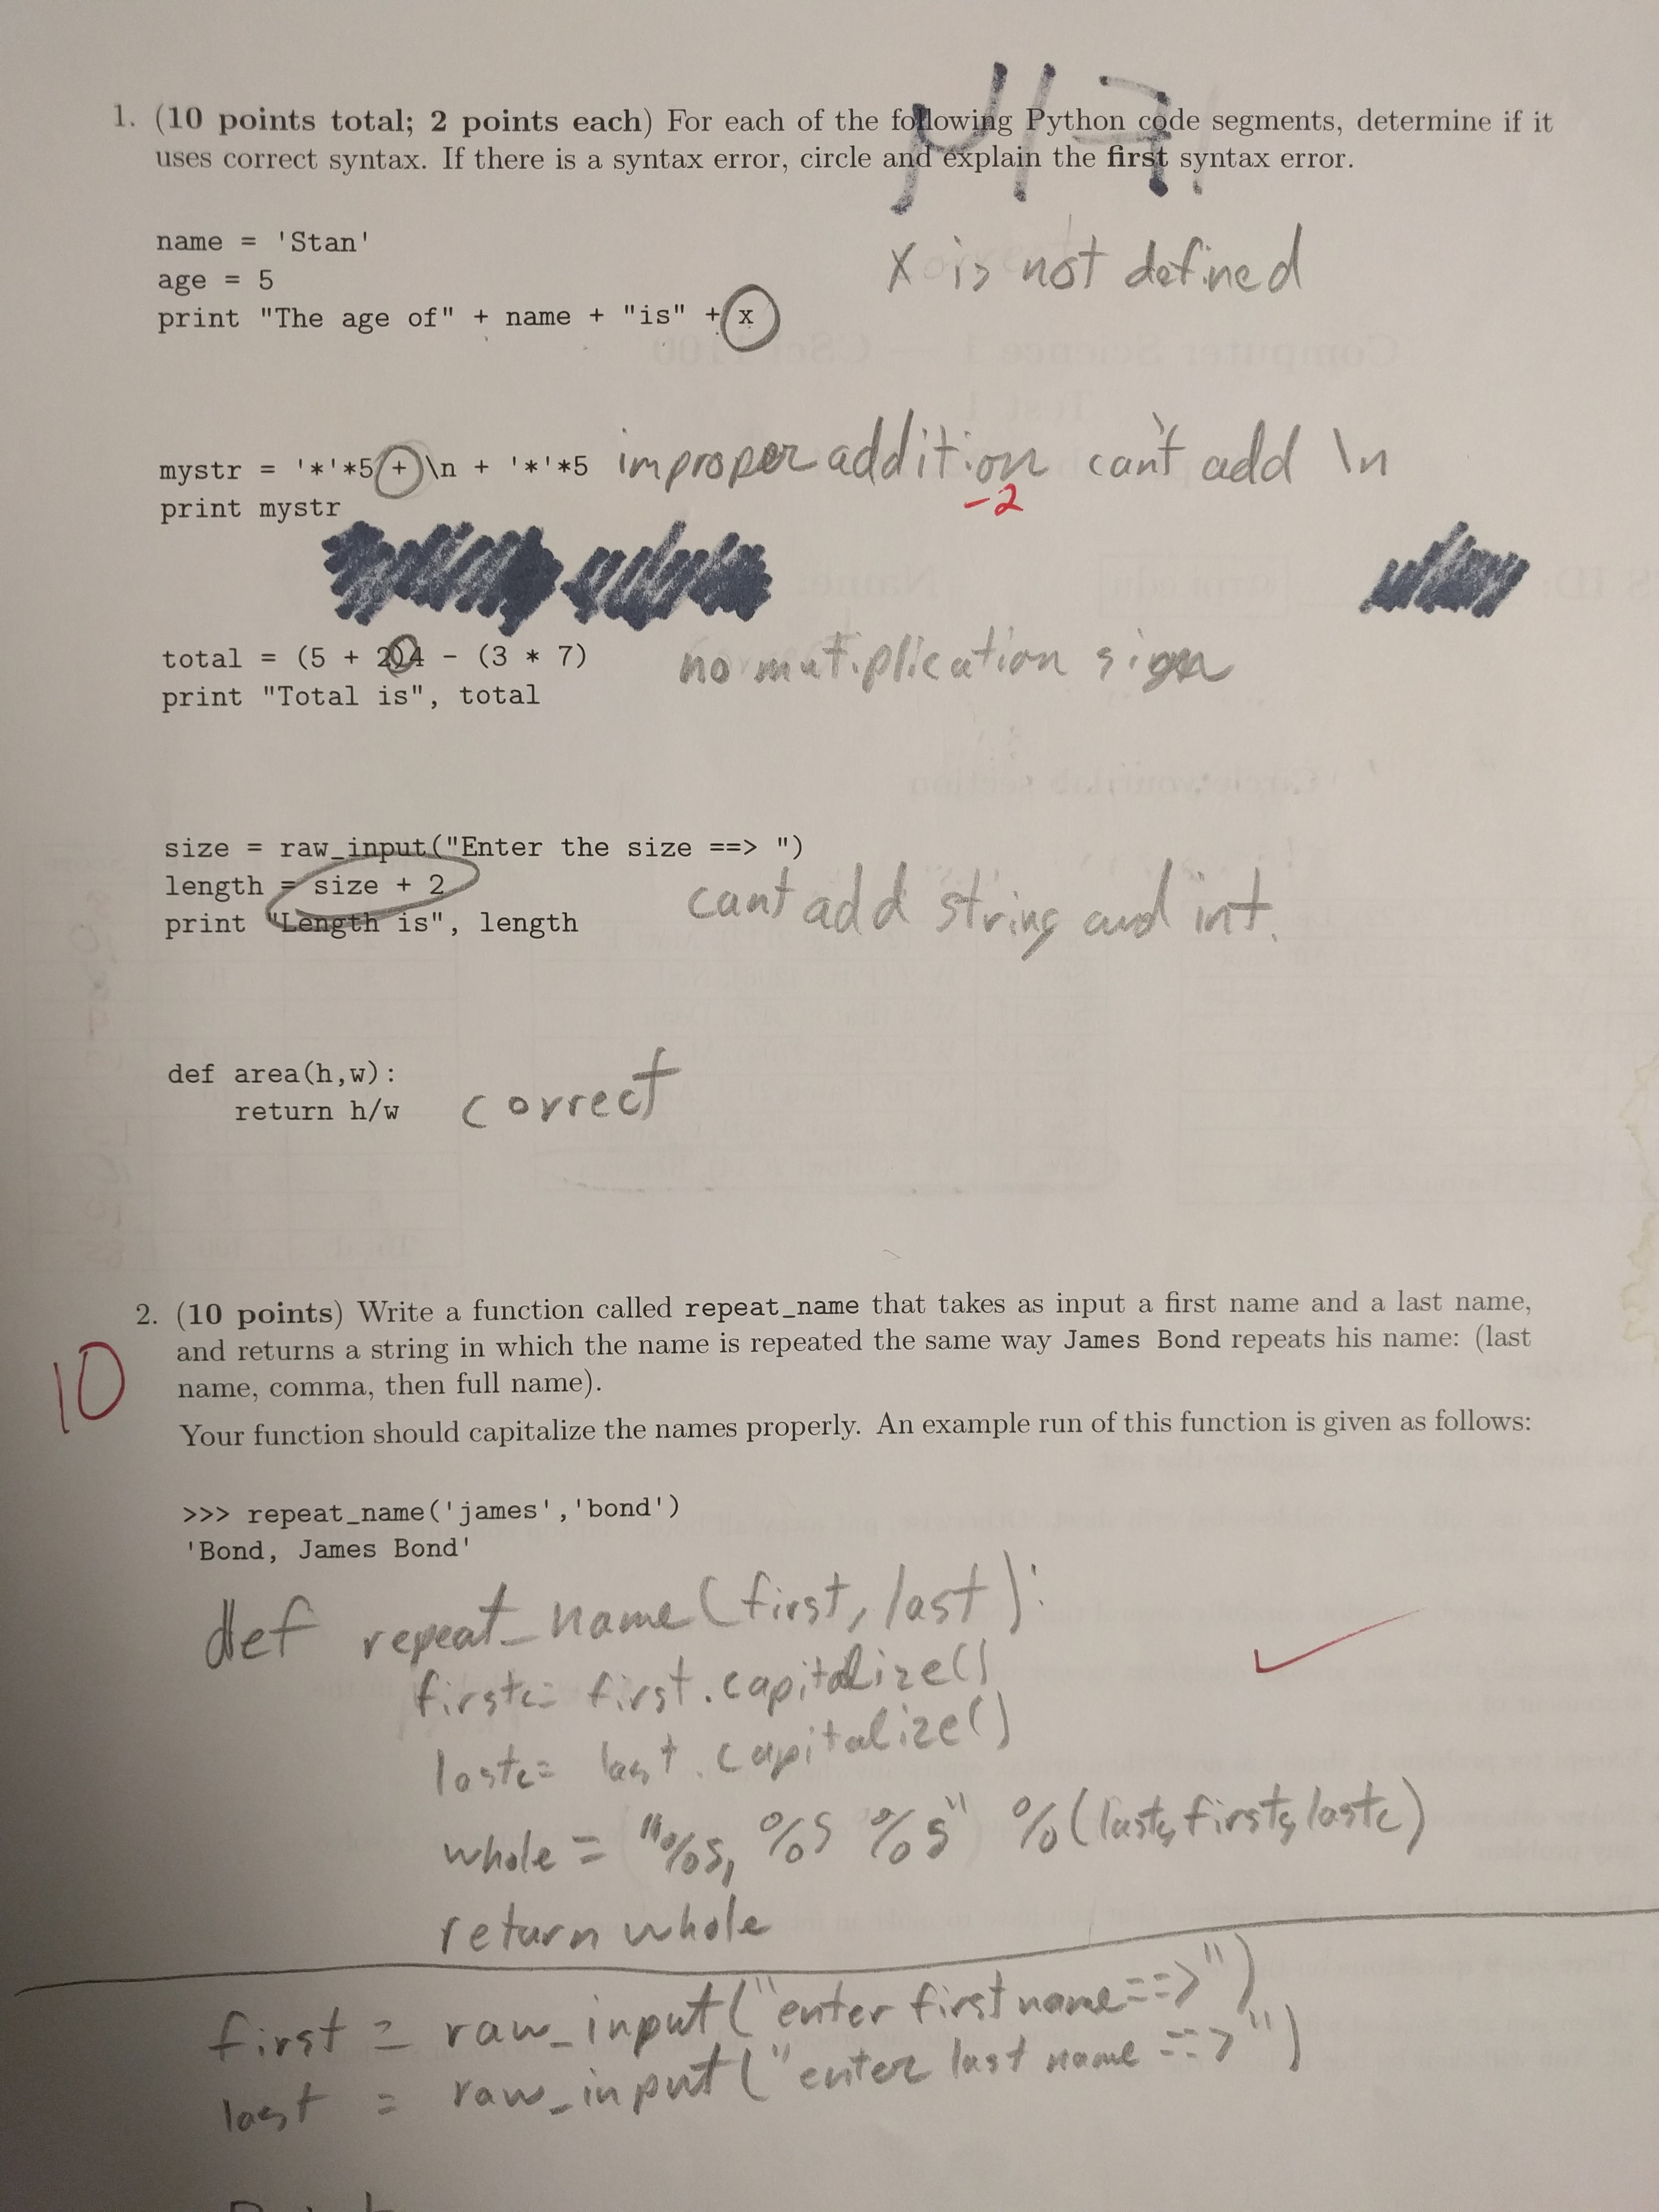 1. (10 points total; 2 points each) For each of the following Python code segments, determine if it
uses correct syntax. If there is a syntax error, circle and explain the first syntax error.
name = 'Stan'
age = 5
print "The age of" + name + "is" + x
x is not defined
mystr = '*'*5 + \n + '*'*5
improper addition can't add \n
-2
print mystr
total = (5 + 2()4 - (3 * 7)
no mutiplication sign
print "Total is", total
size = raw_input("Enter the size ==> ")
length = size + 2
cant add string and int.
print "Length is", length
def area(h,w):
return h/w
correct
2. (10 points) Write a function called repeat_name that takes as input a first name and a last name,
and returns a string in which the name is repeated the same way James Bond repeats his name: (last
name, comma, then full name).
10
Your function should capitalize the names properly. An example run of this function is given as follows:
>>> repeat_name('james','bond')
'Bond, James Bond'
def repeat_name(first, last):
firstc= first.capitalize()
lastc= last.capitalize()
whole = "%s, %s %s" %(lastc, firstc, lastc)
return whole
first = raw_input("enter first name==>")
last = raw_input("enter last name ==>")